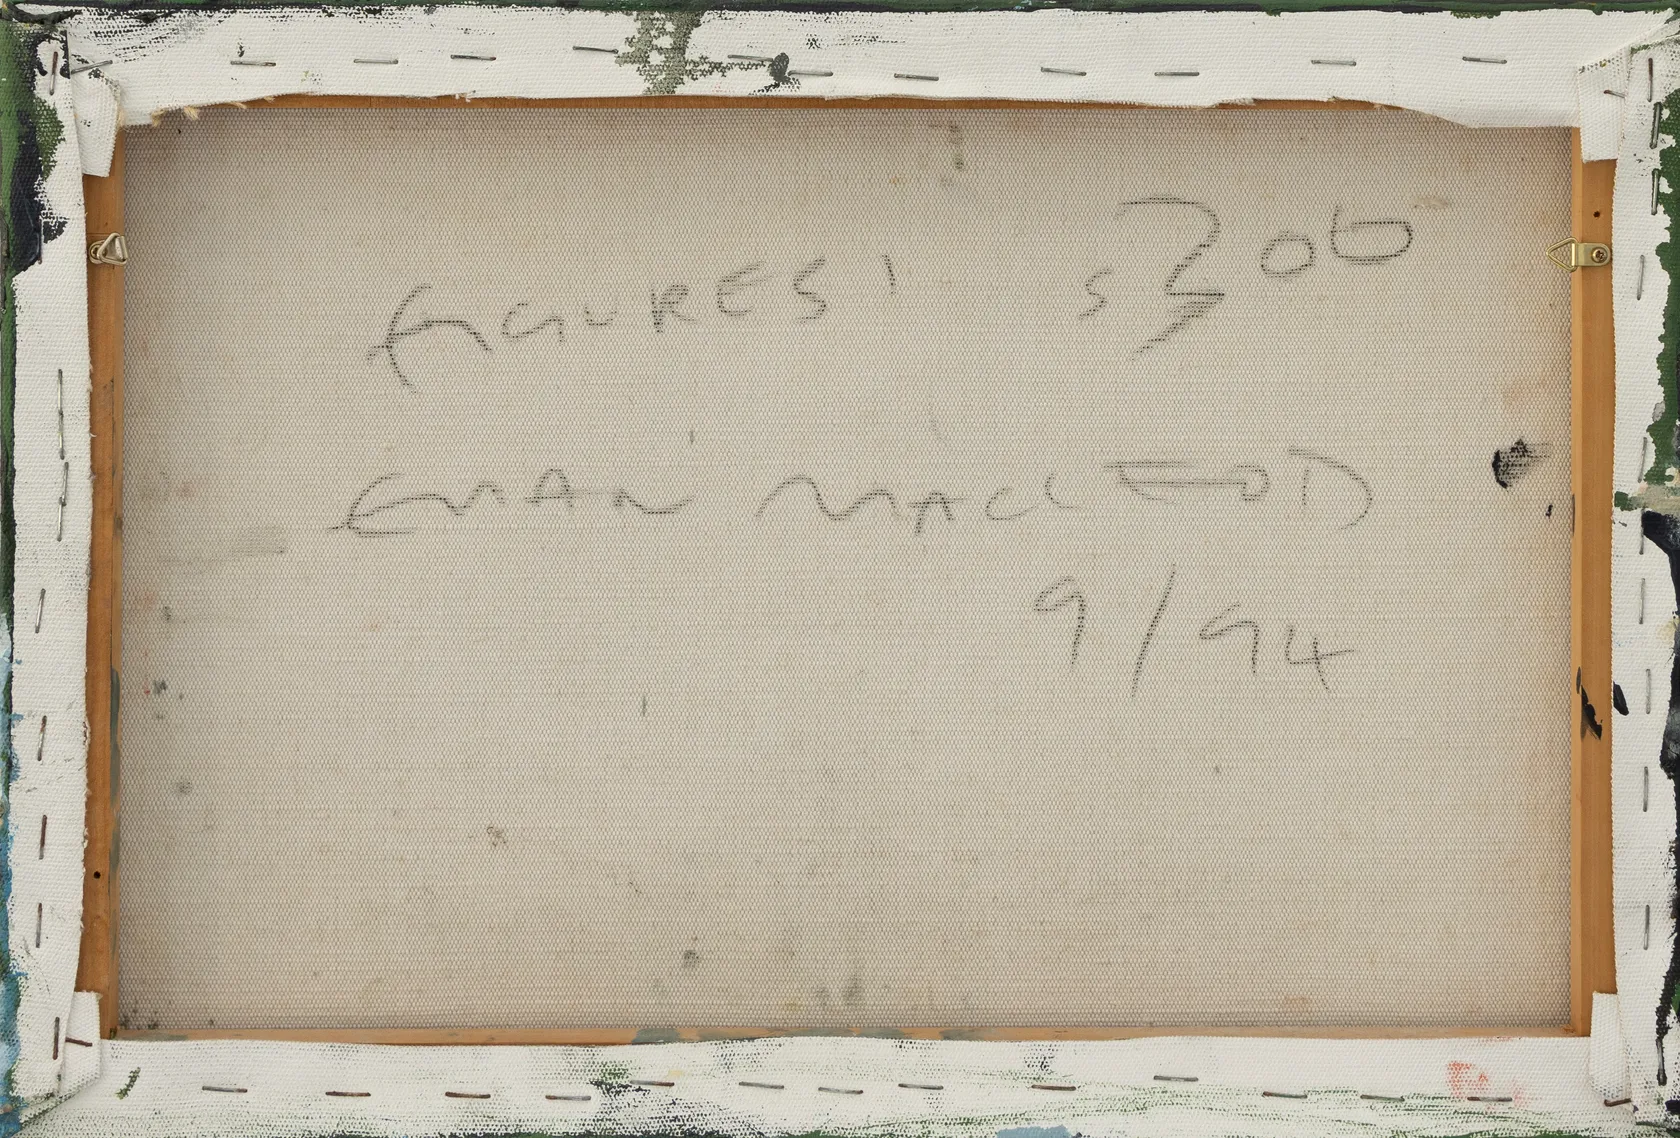 FIGURES'
EUAN MACLEOD
9/94